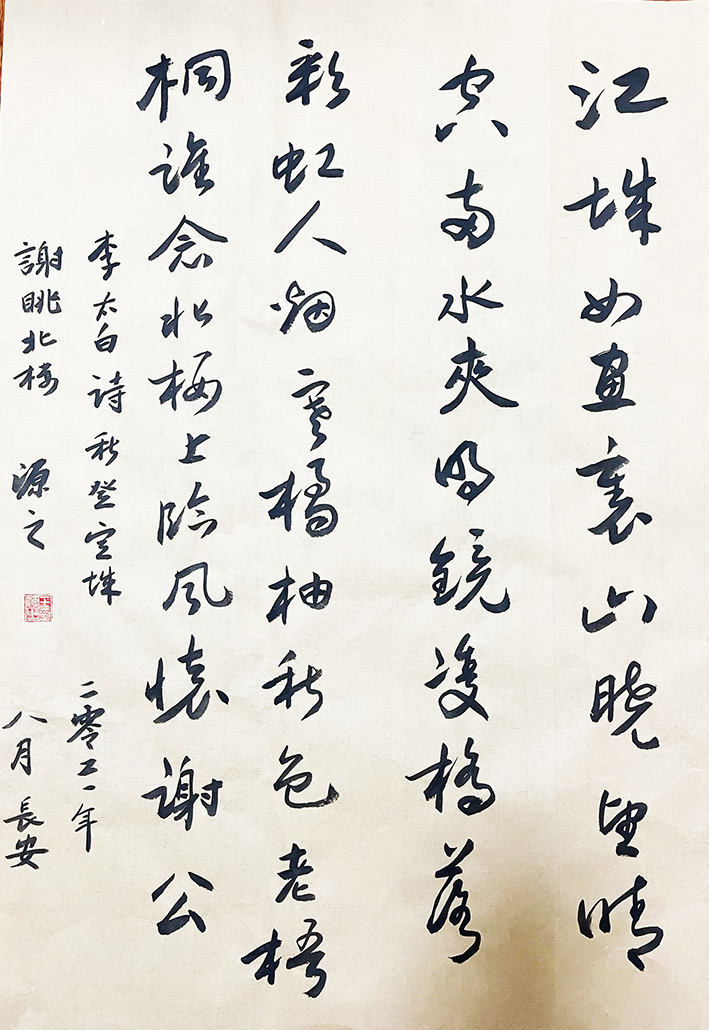 江城如畫裏山晓望晴
空兩水夾明鏡雙橋落
彩虹人烟寒橘柚秋色老梧
桐誰念北楼上臨風懷謝公
李太白詩秋登宣城 二零二一年
謝眺北楼 源之 八月長安